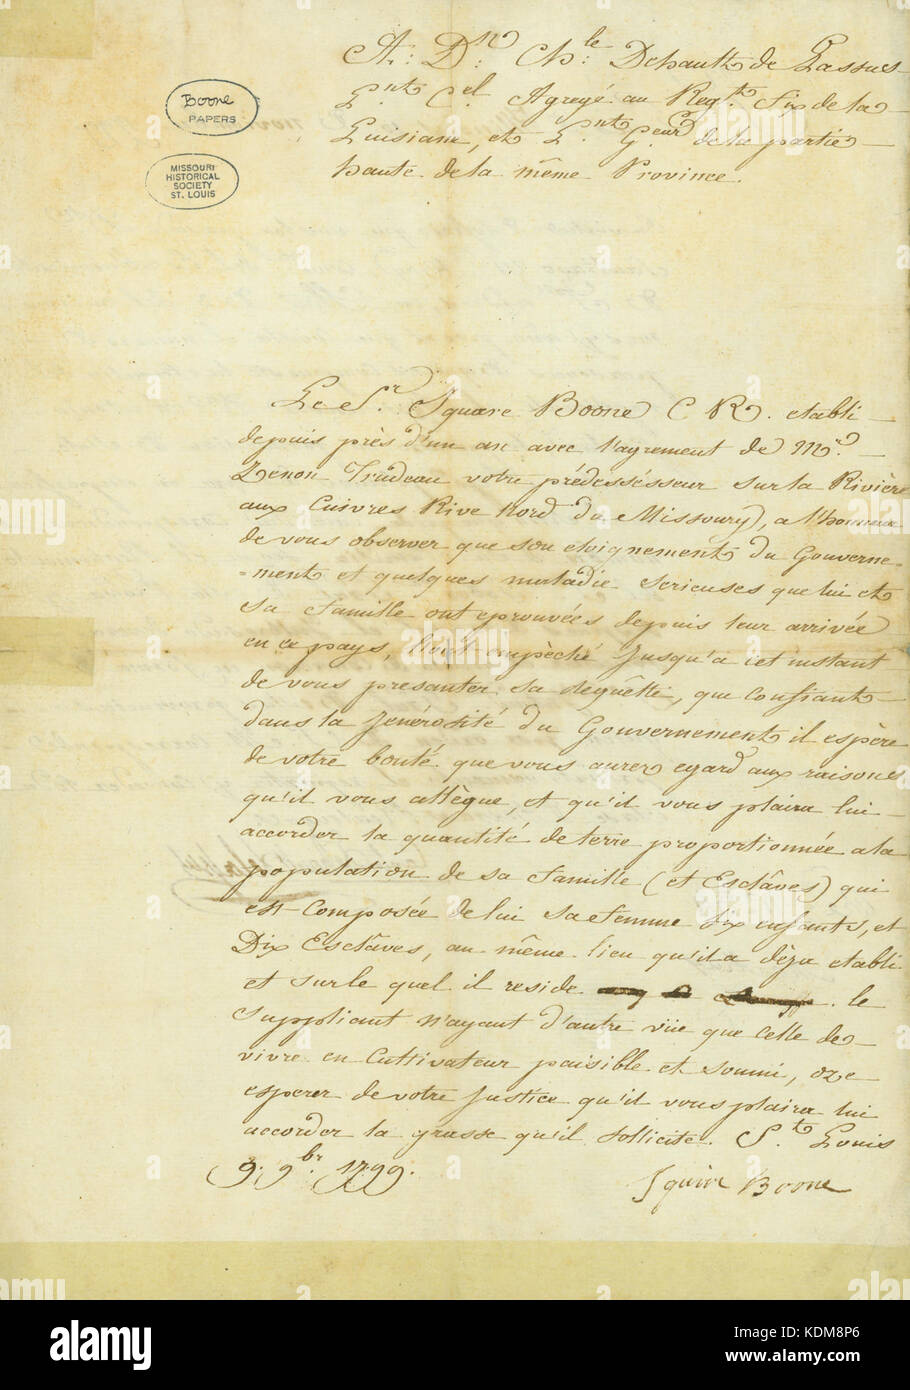 A: Dn. Chle: Dehault de Lassus
Lnt. Cel. Agregé au Regt. fix de la
Luisiane, et Lnt Geur. de la partie
haute de la même Province.
Boone
PAPERS
MISSOURI
HISTORICAL
SOCIETY
ST. LOUIS
Le Sr. Squire Boone C R. etabli
depuis près d'un an avec l'agrement de Mr.
Zenon Trudeau votre prédessésseur sur la Rivière
aux Cuivres Rive Nord du Missoury, a l'honneur
de vous observer que son eloignement du Gouverne-
-ment et quelques maladie serieuses que lui et
sa famille ont eprouvées depuis leur arrivée
en ce pays, empèché Jusqu'a cet instant
de vous presanter sa Requêtte, que Confiant
dans la Jenérosité du Gouvernement il espère
de votre bonté que vous aurez egard aux raisons
qu'il vous allègue, et qu'il vous plaira lui
accorder la quantité de terre proportionnée a la
population de sa famille (et Esclâves) qui
est Composée de lui sa femme six enfants, et
Dix Esclâves, au même lieu qu'il a dèja etabli
et sur le quel il reside le
Suppliant n'ayant d'autre vüe que Celle de
vivre en Cultivateur paisible et soumi, oze
esperer de votre Justice qu'il vous plaira lui
accorder la grasse qu'il sollicite. St. Louis
9. 9br. 1799.
Squire Boone
alamy
alamy
Image ID: KDM8P6
www.alamy.com